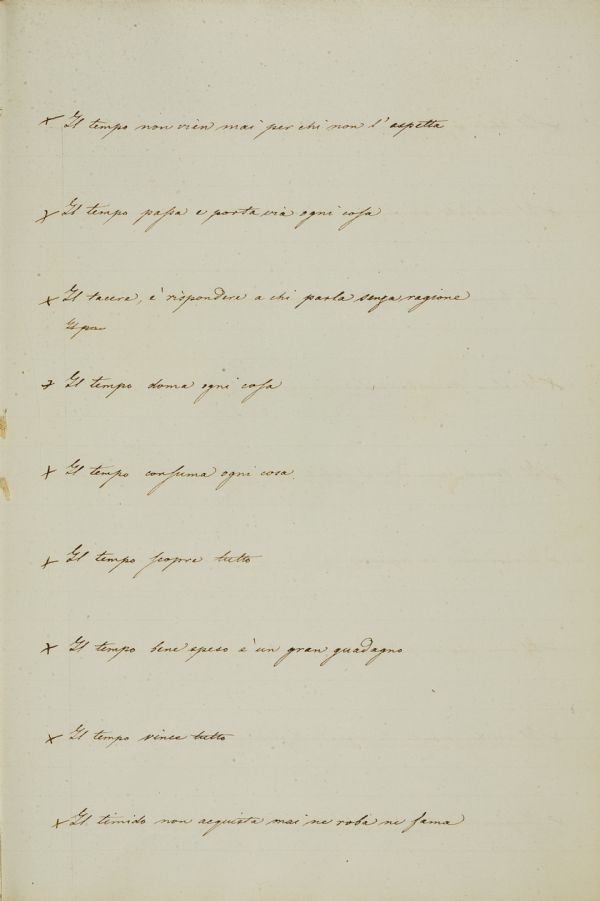 x Il tempo non vien mai per chi non l' aspetta
x Il tempo passa e porta via ogni cosa
x Il tacere, è rispondere a chi parla senza ragione
x Il tempo doma ogni cosa
x Il tempo consuma ogni cosa
x Il tempo scopre tutto
x Il tempo bene speso è un gran guadagno
x Il tempo vince tutto
x Il timido non acquista mai ne roba ne fama